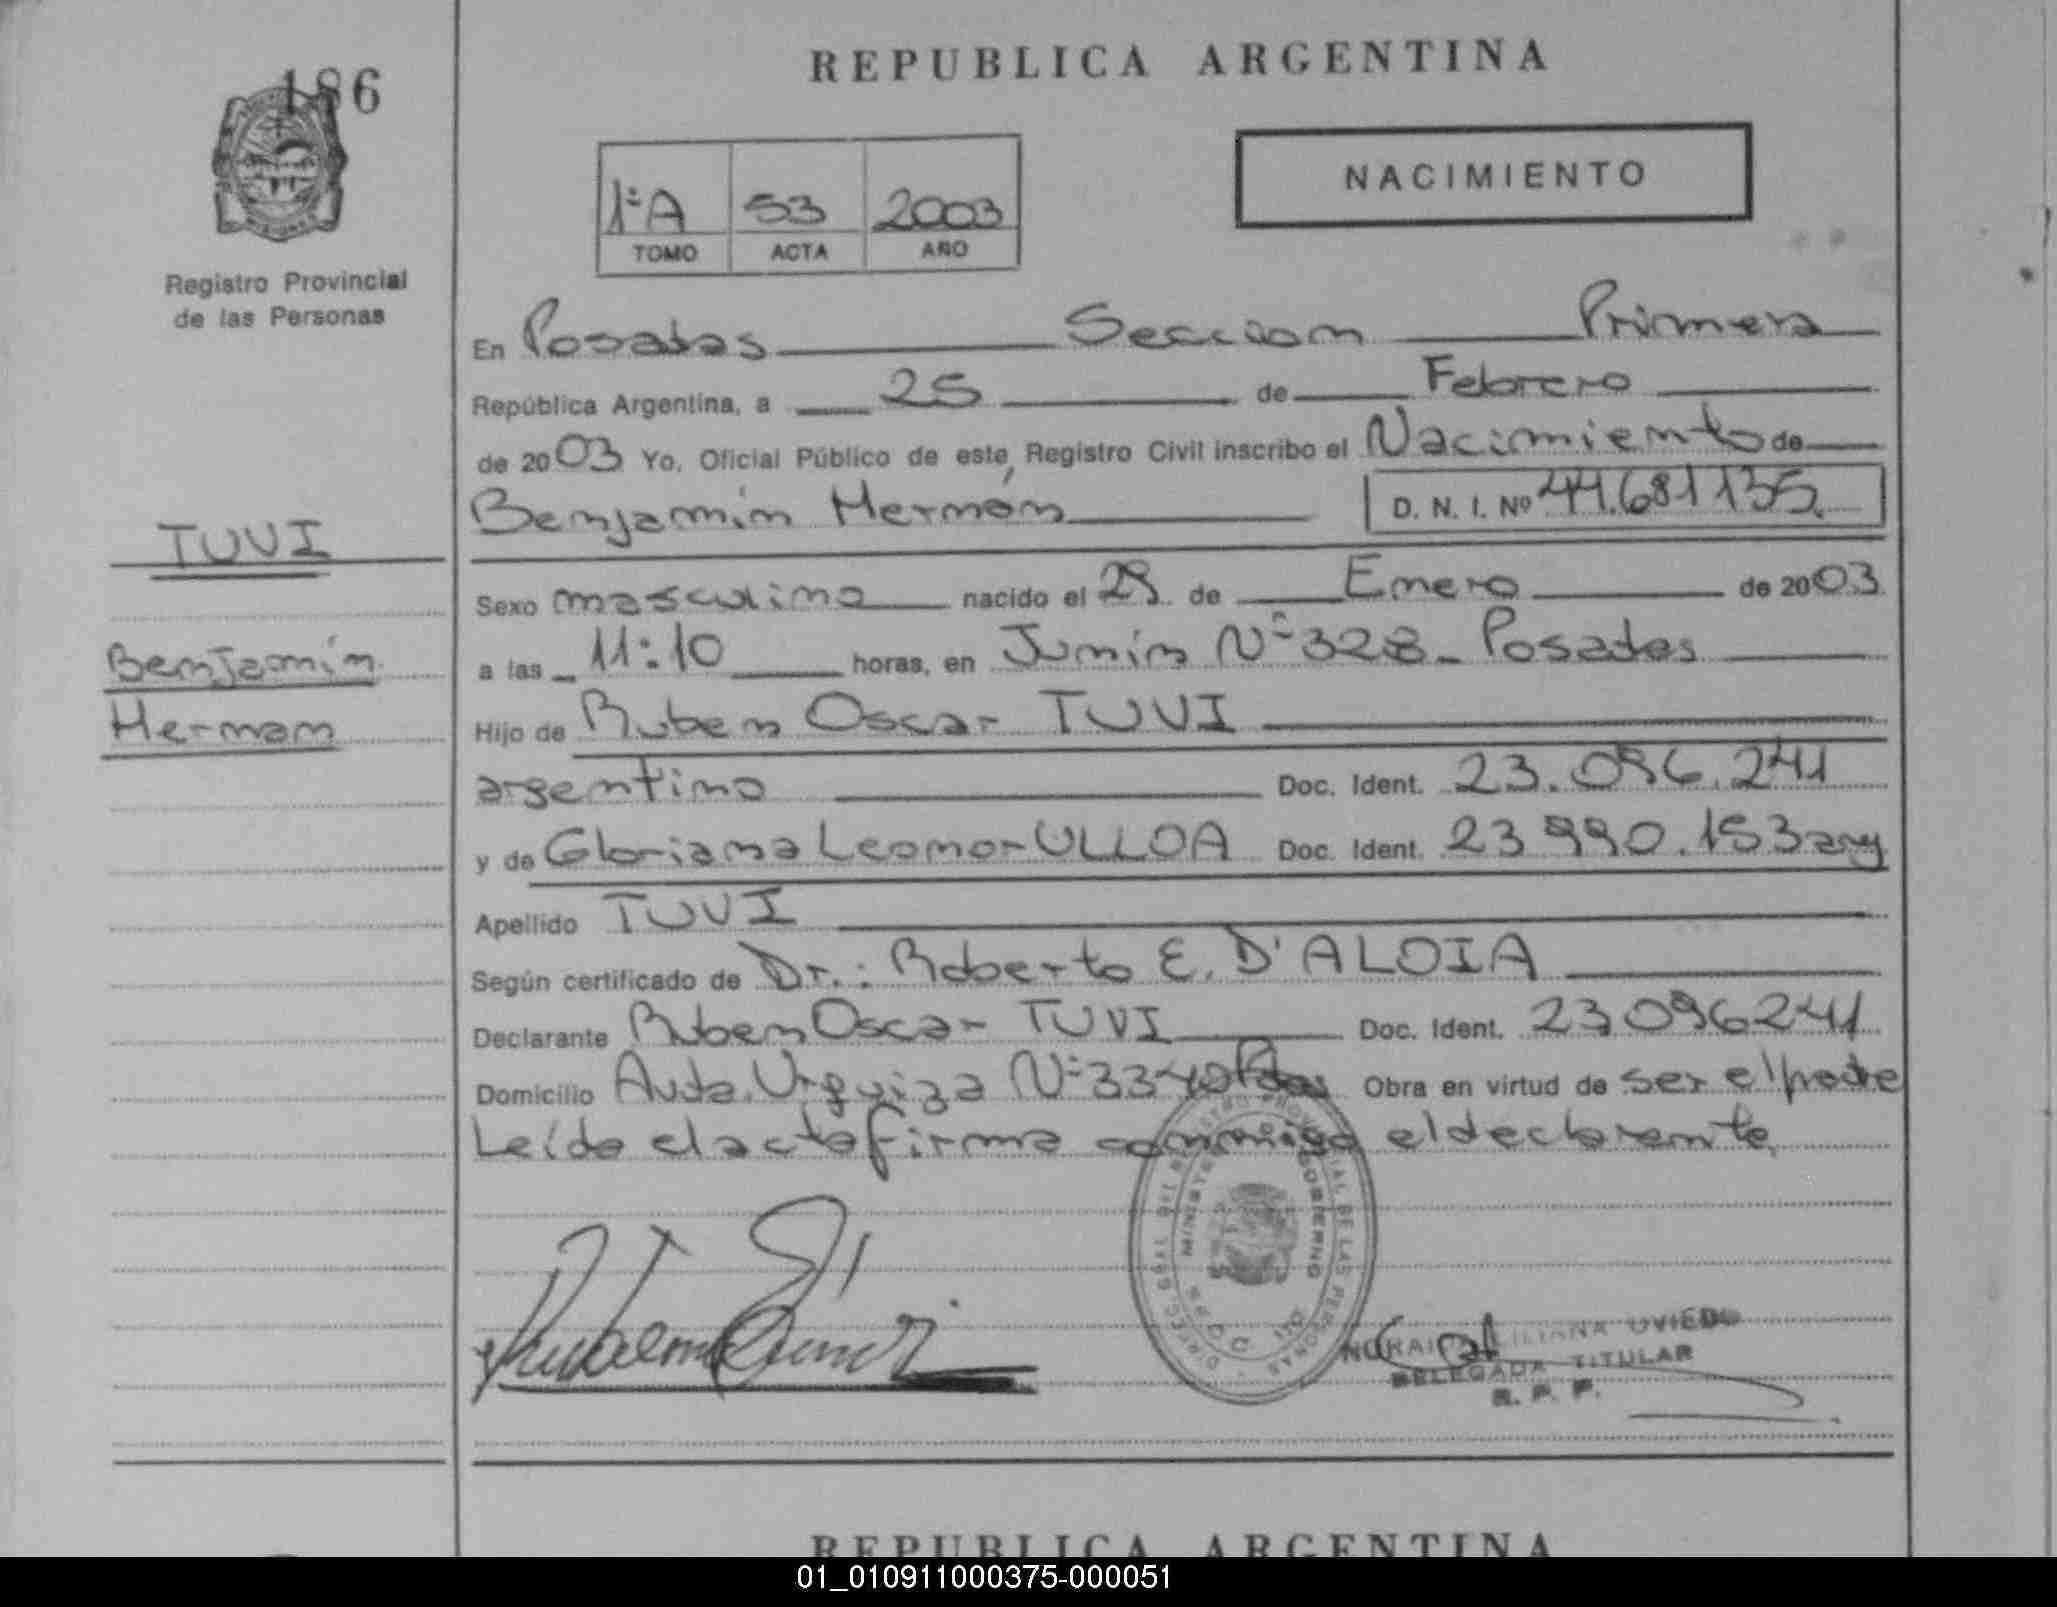 186
REPUBLICA ARGENTINA
NACIMIENTO
1ºA 53 2003
TOMO ACTA AÑO
Registro Provincial
de las Personas
En Posadas Seccion Primera
República Argentina, a 25 de Febrero
de 2003 Yo, Oficial Público de este Registro Civil inscribo el Nacimiento de
Benjamín Hernán D. N. I. Nº 44.681135.
TUVI
Sexo masculino nacido el de Enero de 2003
Benjamín
a las 11:10 horas, en Junín Nº 328 - Posadas
Hernan
Hijo de Ruben Oscar TUVI
argentino Doc. Ident. 23.096.241
y de Gloriana Leonor ULLOA Doc. Ident. 23 990.153 arg
Apellido TUVI
Según certificado de Dr.: Roberto E. D'ALOIA
Declarante Ruben Oscar TUVI Doc. Ident. 23096241
Domicilio Avda. Urquiza Nº 3340 Pdas Obra en virtud de ser el padre
Leído el acta firma conmigo el declarante
DIRECC GRAL DEL REGISTRO PROVINCIAL DE LAS PERSONAS
MINISTERIO GOBIERNO
LILIANA UVIEDO
DELEGADA TITULAR
R. P. P.
REPUBLICA ARGENTINA
01_010911000375-000051